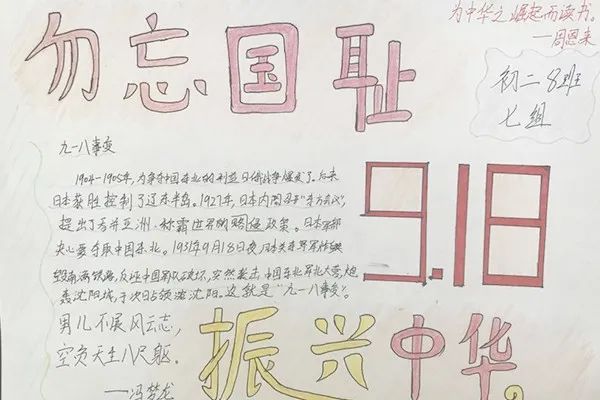 勿忘国耻
为中华之崛起而读书。
—周恩来
初二8班
七组
九一八事变
1904-1905年,为争夺中国东北的利益日俄战争爆发了。后来
日本获胜控制了辽东半岛。1927年,日本内阁召开"东方会议",
提出了吞并亚洲、称霸世界的侵政策。日本军部
决心要夺取中国东北。1931年9月18日夜,日本关东军军
毁南满铁路,反诬中国军队破坏,突然袭击中国东北军北大营,炮
轰沈阳城,于次日占领沈阳。这就是"九一八事变"。
9.18
男儿不展风云志,
空负天生八尺躯。
——冯梦龙
振兴中华。